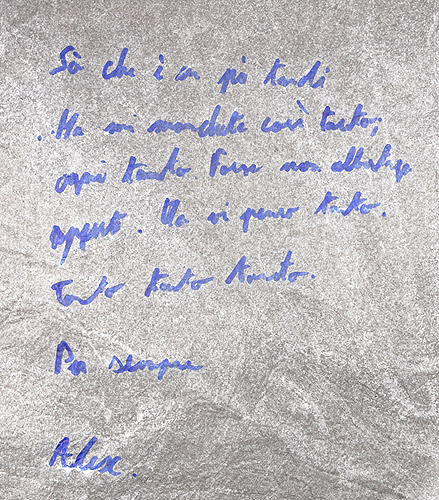 Sò che è un pò tardi
Ma mi mancate così tanto;
ogni tanto Forse non abbastanza
appest. Ma vi penso tanto.
Tanto tanto tanto.
Per sempre
Alex.